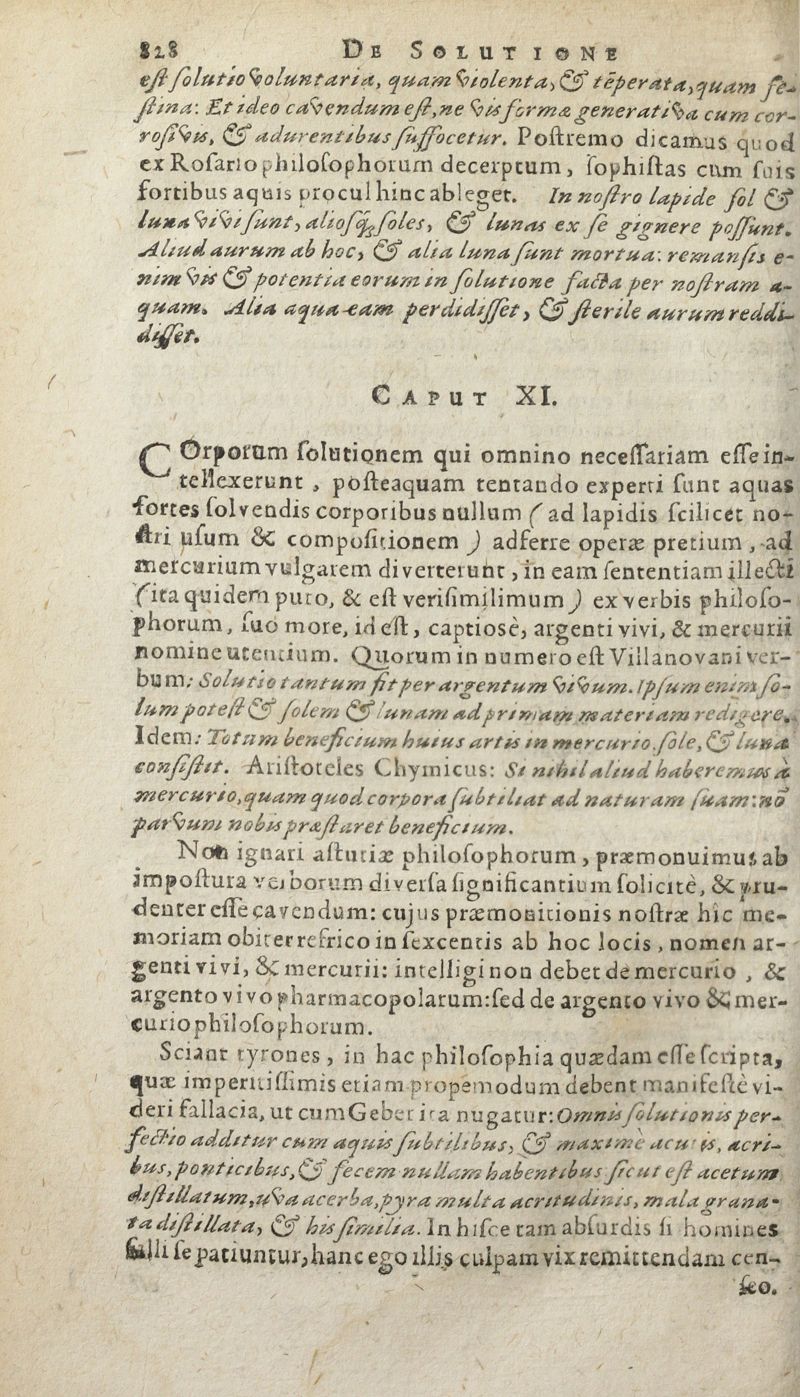 828 DE SOLUTIONE
est solutio voluntaria, quam violenta, & tēperata, quam fe-
stina: Et ideo cavendum est, ne vis formæ generativa cum cor-
rosivis, & adurentibus suffocetur. Postremo dicamus quod
ex Rosario philosophorum decerptum, sophistas cum suis
fortibus aquis procul hinc ableget. In nostro lapide sol &
luna vivi sunt, aliosq; soles, & lunas ex se gignere possunt.
Aliud aurum ab hoc, & alia luna sunt mortua: remansis e-
nim vis & potentia eorum in solutione facta per nostram a-
quam. Alia aqua eam perdidisset, & sterile aurum reddi-
disset.
CAPUT XI.
COrporum solutionem qui omnino necessariam esse in-
tellexerunt, posteaquam tentando experti sunt aquas
fortes solvendis corporibus nullum (ad lapidis scilicet no-
stri usum & compositionem) adferre operæ pretium, ad
mercurium vulgarem diverterunt, in eam sententiam illecti
(ita quidem puto, & est verisimilimum) ex verbis philoso-
phorum, suo more, id est, captiosè, argenti vivi, & mercurii
nomine utentium. Quorum in numero est Villanovani ver-
bum: Solutio tantum fit per argentum vivum. Ipsum enim so-
lum potest & solem & lunam ad primam materiam redigere.
Idem: Totum beneficium huius artis in mercurio, sole, & luna
consistit. Aristoteles Chymicus: Si nihil aliud haberemus à
mercurio, quam quod corpora subtiliat ad naturam suam: nō
parvum nobis præstaret beneficium.
Non ignari astutiæ philosophorum, præmonuimus ab
impostura verborum diversa significantium solicitè, & pru-
denter esse cavendum: cujus præmonitionis nostræ hic me-
moriam obiter refrico in sexcentis ab hoc locis, nomen ar-
genti vivi, & mercurii: intelligi non debet de mercurio, &
argento vivo pharmacopolarum: sed de argento vivo & mer-
curio philosophorum.
Sciant tyrones, in hac philosophia quædam esse scripta,
quæ imperitissimis etiam propemodum debent manifestè vi-
deri fallacia, ut cum Geber ita nugatur: Omnis solutionis per-
fectio additur cum aquis subtilibus, & maxime acutis, acri-
bus, ponticibus, & fecem nullam habentibus sicut est acetum
distillatum, uva acerba, pyra multa acritudinis, mala grana-
ta distillata, & his similia. In hisce tam absurdis si homines
falli se patiuntur, hanc ego illis culpam vix remittendam cen-
seo.